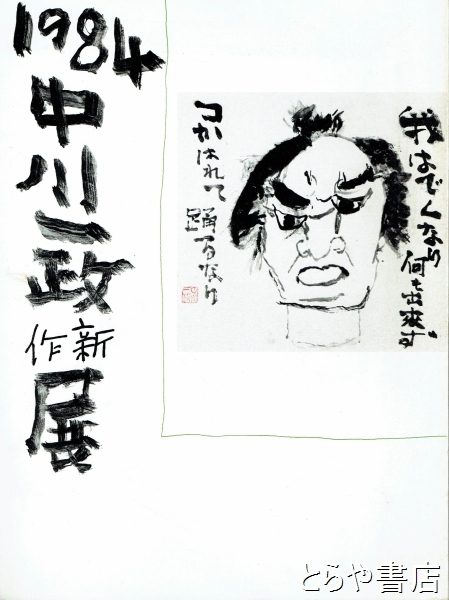 1984
中川一政
新作
展
我はでくなり
何も出来ず
つかはれて
踊るなり
とらや書店